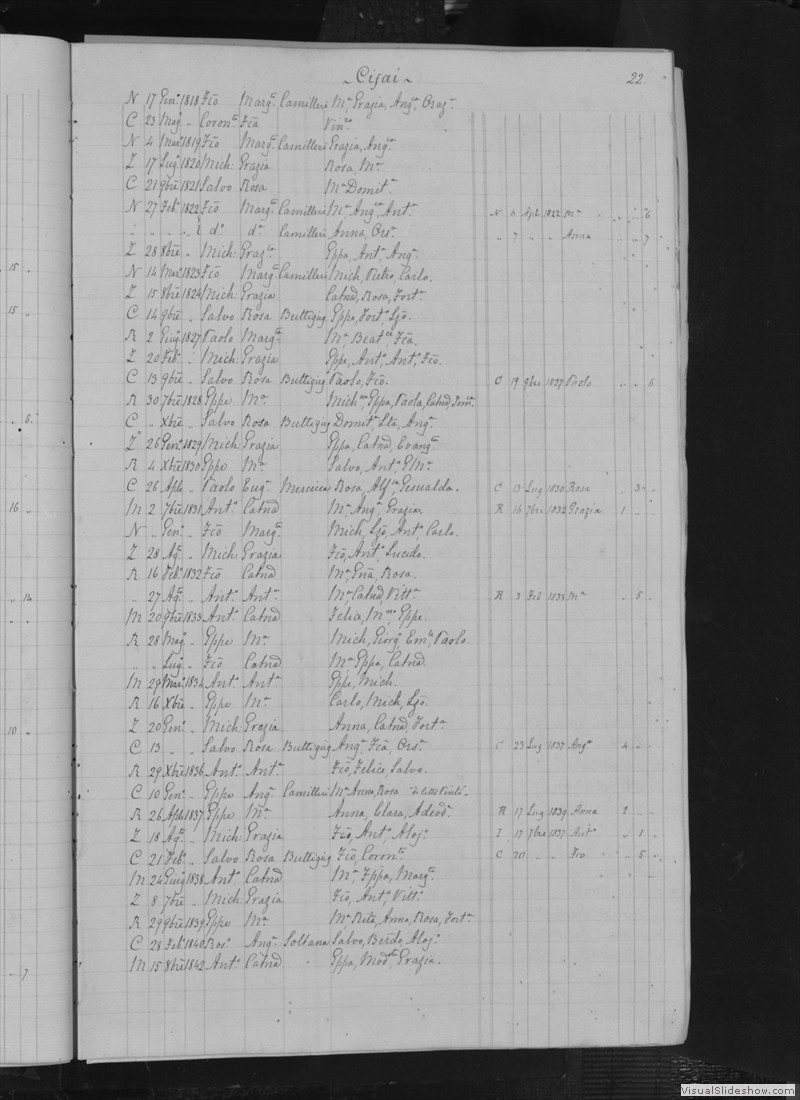 Cisai 22.
N 17 Gen.º 1818 Fcõ Marg.ª Camilleri M.ª Grazia, Ang.ª, Oraz.ª
C 23 Mag. „ Coron.º Fcã Vin.ª
N 4 Mar.º 1819 Fcõ Marg.ª Camilleri Grazia, Ang.ª
Z 17 Lug.º 1820 Mich: Grazia Rosa, M.ª
C 21 9bre 1821 Salvo Rosa M.ª Domit.ª
N 27 Feb.º 1822 Fcõ Marg.ª Camilleri M.ª Ang.ª, Ant.ª N 6 Apl. 1822 M.ª „ „ 6
„ „ „ „ d.º d.ª Camilleri Anna, Ors.ª „ 7 „ „ Anna „ „ 7
Z 28 8bre „ Mich: Graz.ª Gppa, Ant.ª, Ang.ª
15 „
N 14 Mar.º 1823 Fcõ Marg.ª Camilleri Mich, Pietro, Carlo.
Z 15 8bre 1824 Mich: Grazia Catnã, Rosa, Fort.ª
15 „
C 14 9bre „ Salvo Rosa Buttigieg Gppa, Fort.ª
R 2 Giug.º 1827 Paolo Marg.ª M.ª Beat.ce, Fcã.
Z 20 Feb.º „ Mich: Grazia Gppe, Ant.º, Ant.º, Fcõ.
C 13 9bre „ Salvo Rosa Buttigieg Paolo, Fcõ. C 19 9bre 1827 Paolo „ „ 6
R 30 7bre 1828 Gppe M.ª Gppa, Paola, Catnã,
„ 8.
C „ Xbre „ Salvo Rosa Buttigieg Domit.ª Ang.ª
Z 26 Gen.º 1829 Mich: Grazia Gppa, Catnã, Evang.ª
R 4 Xbre 1830 Gppe M.ª Salvo, Ant.º
C 26 Aple „ Paolo Eug.ª Mercieca Rosa, Gesualda. C 13 Lug 1830 Rosa „ 3 „
16 „
M 2 7bre 1831 Ant.º Catnã M.ª Ang.ª, Grazia. R 16 7bre 1832 Grazia 1 „
N „ Gen.º „ Fcõ Marg.ª Mich, Ant.º, Carlo.
Z 28 Ag.º „ Mich: Grazia Fcõ, Ant.º Lucido.
R 16 Feb.º 1832 Fcõ Catnã M.ª Rosa.
„ 14
„ 27 Ag.º „ Ant.º Ant.ª M.ª Catnã Vitt.ª R 3 Feb 1833 M.ª „ 5 „
M 20 9bre 1833 Ant.º Catnã Felice, Gppe.
R 28 Mag. „ Gppe M.ª Mich, Giorg.º Em.le, Paolo.
„ „ Lug. „ Fcõ Catnã M.ª Gppa, Catnã.
M 29 Mar.º 1834 Ant.º Ant.ª Gppe, Mich.
R 16 Xbre „ Gppe M.ª Carlo, Mich,
10 „
Z 20 Gen.º „ Mich: Grazia Anna, Catnã, Fort.ª
C 13 „ „ Salvo Rosa Buttigieg Ang.ª, Fcã, Ors.ª C 23 Lug 1837 Ang.ª 4 „ „
R 29 Xbre 1836 Ant.º Ant.ª Fcõ, Felice, Salvo.
C 10 Gen.º „ Gppe Ang.ª Camilleri M.ª Anna, Rosa
R 26 Aple 1837 Gppe M.ª Anna, Clara, Adeod.ª R 17 Lug 1839 Anna 2 „ „
Z 18 Ag.º „ Mich: Grazia Fcõ, Ant.º, Aloj.º Z 17 7bre 1837 Ant.º „ 1 „
C 21 Feb.º „ Salvo Rosa Buttigieg Fcõ, Coron.º C 20 „ „ Fcõ „ 5 „
M 24 Giug 1838 Ant.º Catnã M.ª, Gppa, Marg.ª
Z 8 7bre „ Mich: Grazia Fcõ, Ant.º, Vitt.º
R 29 9bre 1839 Gppe M.ª M.ª Rita, Anna, Rosa, Fort.ª
C 28 Feb.º 1840 Ros.º Ang.ª Soltana Salvo, Aloj.º
„ 7
M 15 8bre 1842 Ant.º Catnã Gppa, Grazia.
VisualSlideshow.com